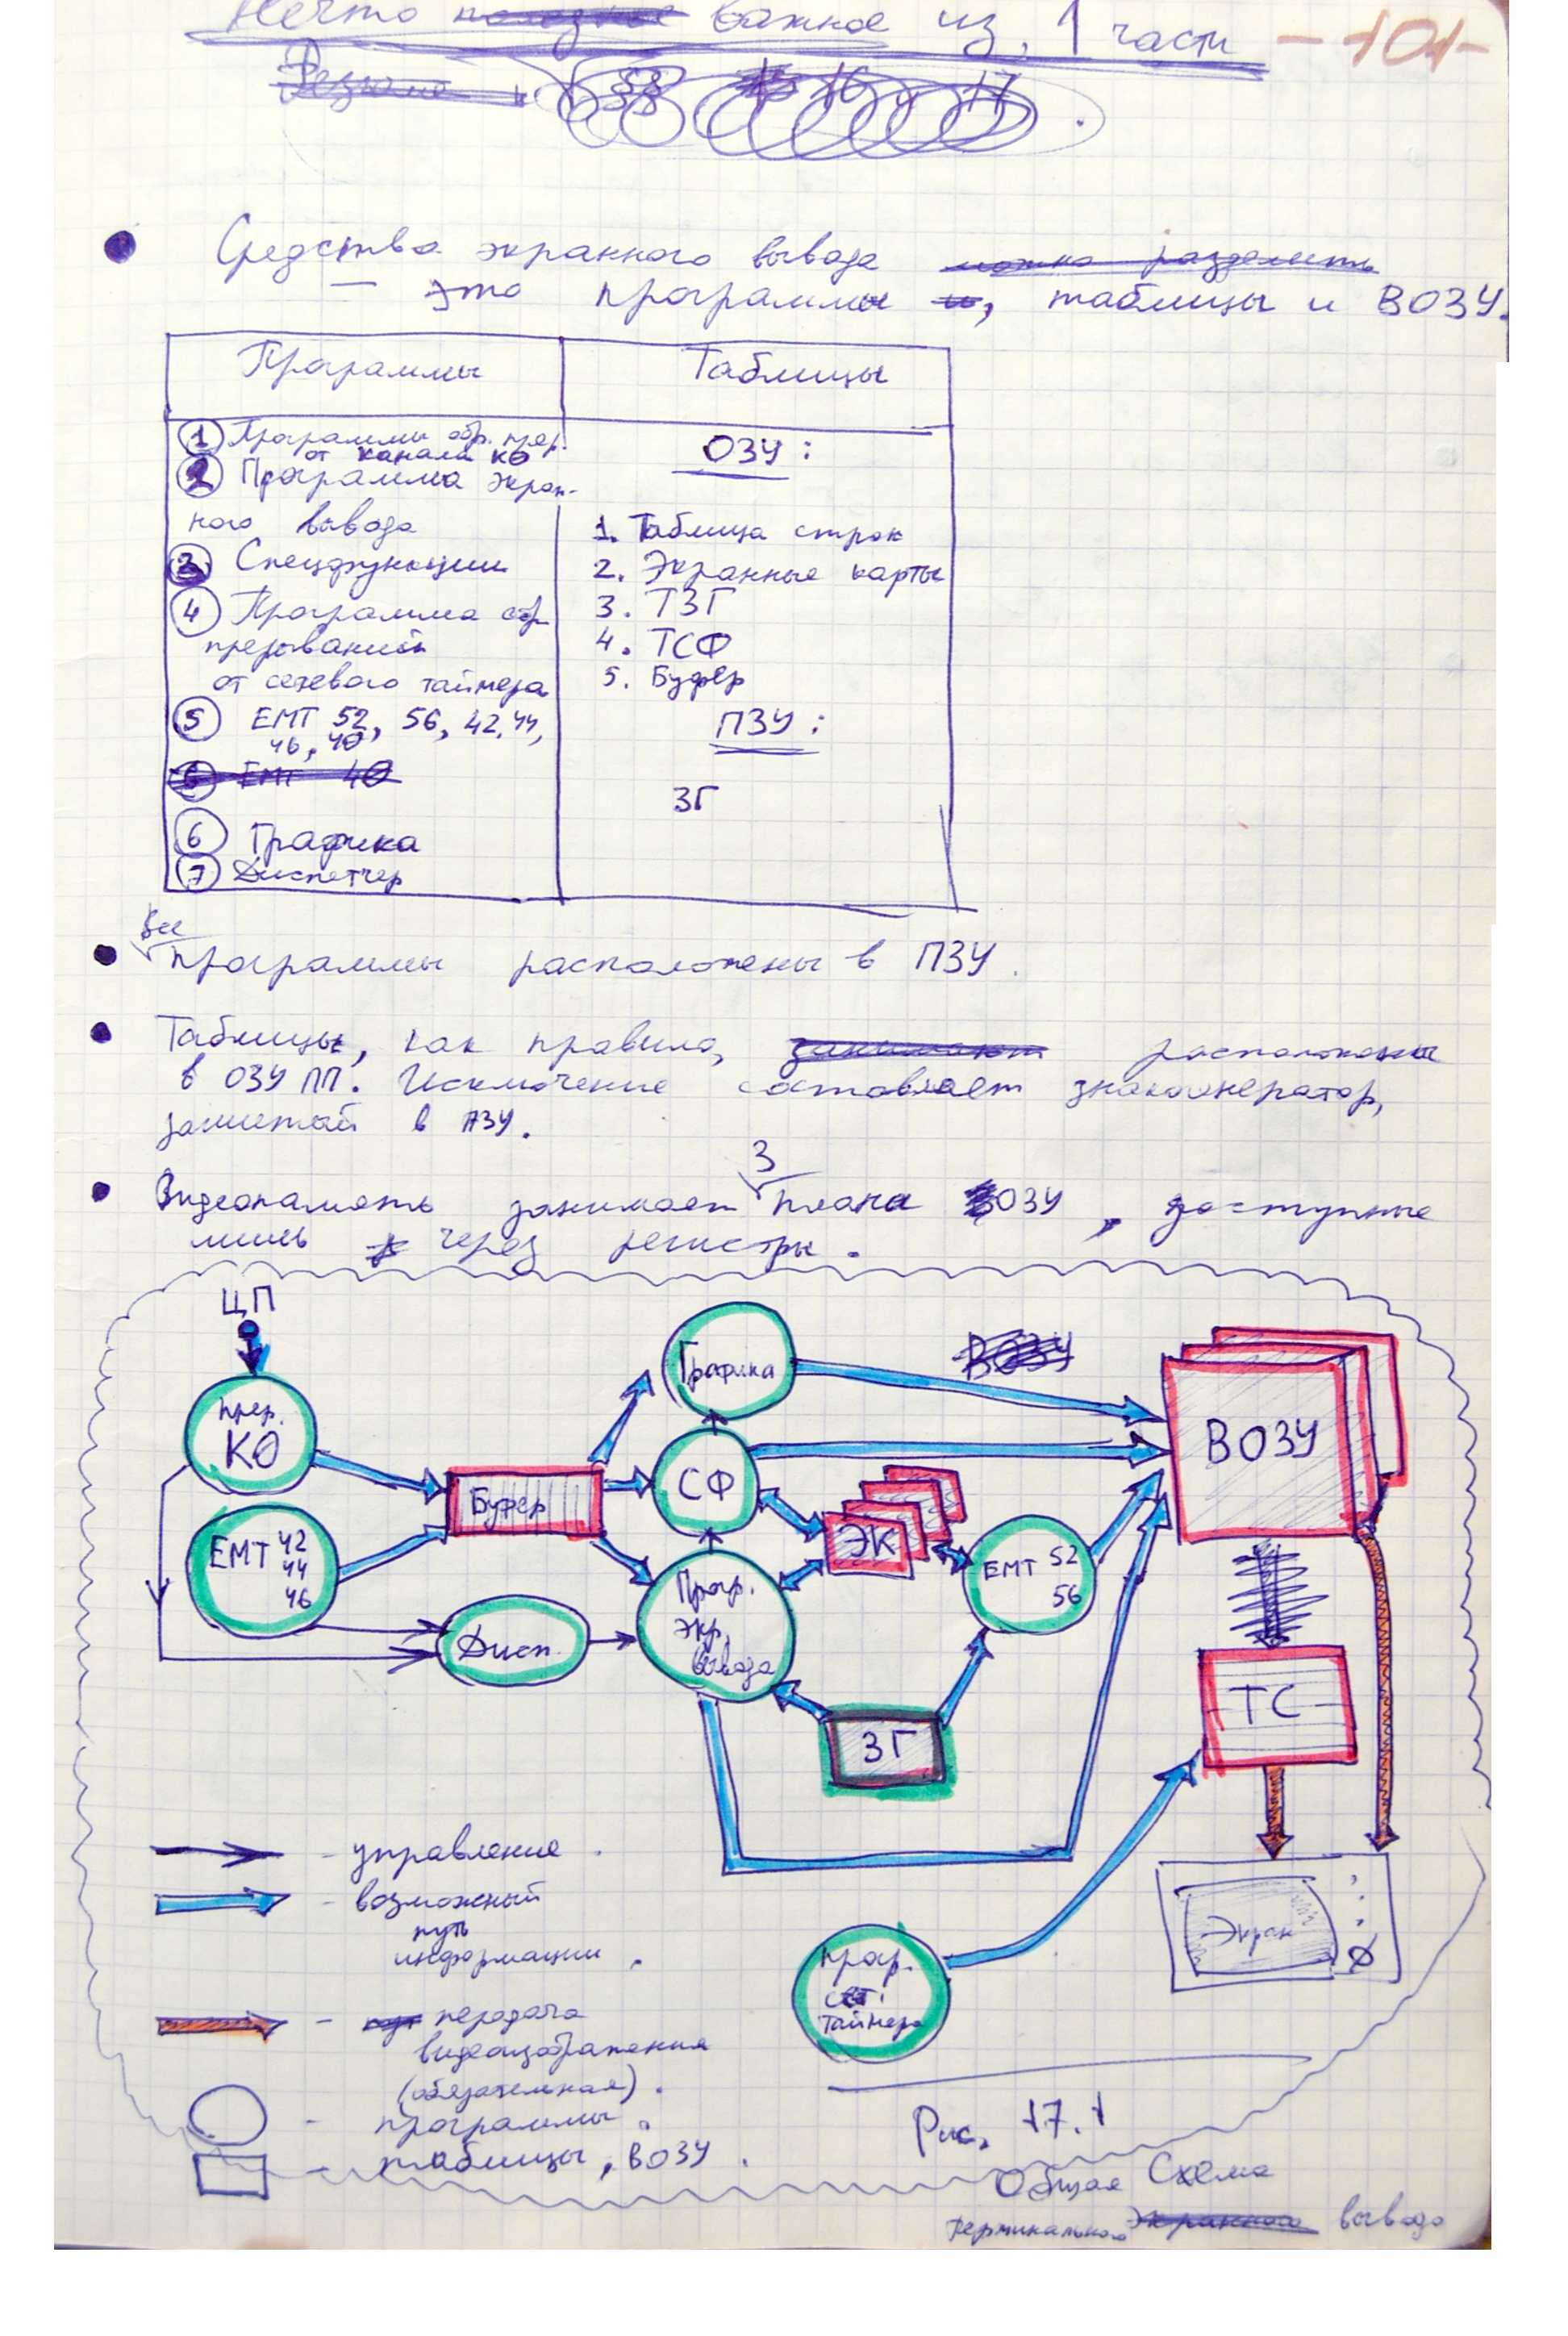 Нечто полезное важное из 1 части - 101-
Резюме
Средства экранного вывода можно разделить
— это программы и, таблицы и ВОЗУ.
Программы
Таблицы
① Программы обр. прер.
от канала К0
② Программа экран-
ного вывода
③ Спецфункции
④ Программа обр.
прерываний
от сетевого таймера
⑤ ЕМТ 52, 56, 42, 44,
46, 40
6 ЕМТ 40
⑥ Графика
⑦ Диспетчер
ОЗУ:
1. Таблица строк
2. Экранные карты
3. ТЗГ
4. ТСФ
5. Буфер
ПЗУ:
ЗГ
Все
• программы расположены в ПЗУ.
• Таблицы, как правило, занимают расположены
в ОЗУ ПП. Исключение составляет знакогенератор,
зашитый в ПЗУ.
3
• Видеопамять занимает плана ВОЗУ, доступные
лишь через регистры.
ЦП
Прер.
К0
ЕМТ 42
44
46
Буфер
Дисп.
Графика
СФ
Прогр.
экр.
вывода
ЭК
ЕМТ 52
56
ЗГ
ВОЗУ
ВОЗУ
ТС
Экран
0
Прогр.
сет.
таймера
- управление.
- возможный
путь
информации.
- передача
видеоизображения
(обязательная).
- программы.
- таблицы, ВОЗУ.
Рис. 17.1
Общая Схема
терминального экранного вывода